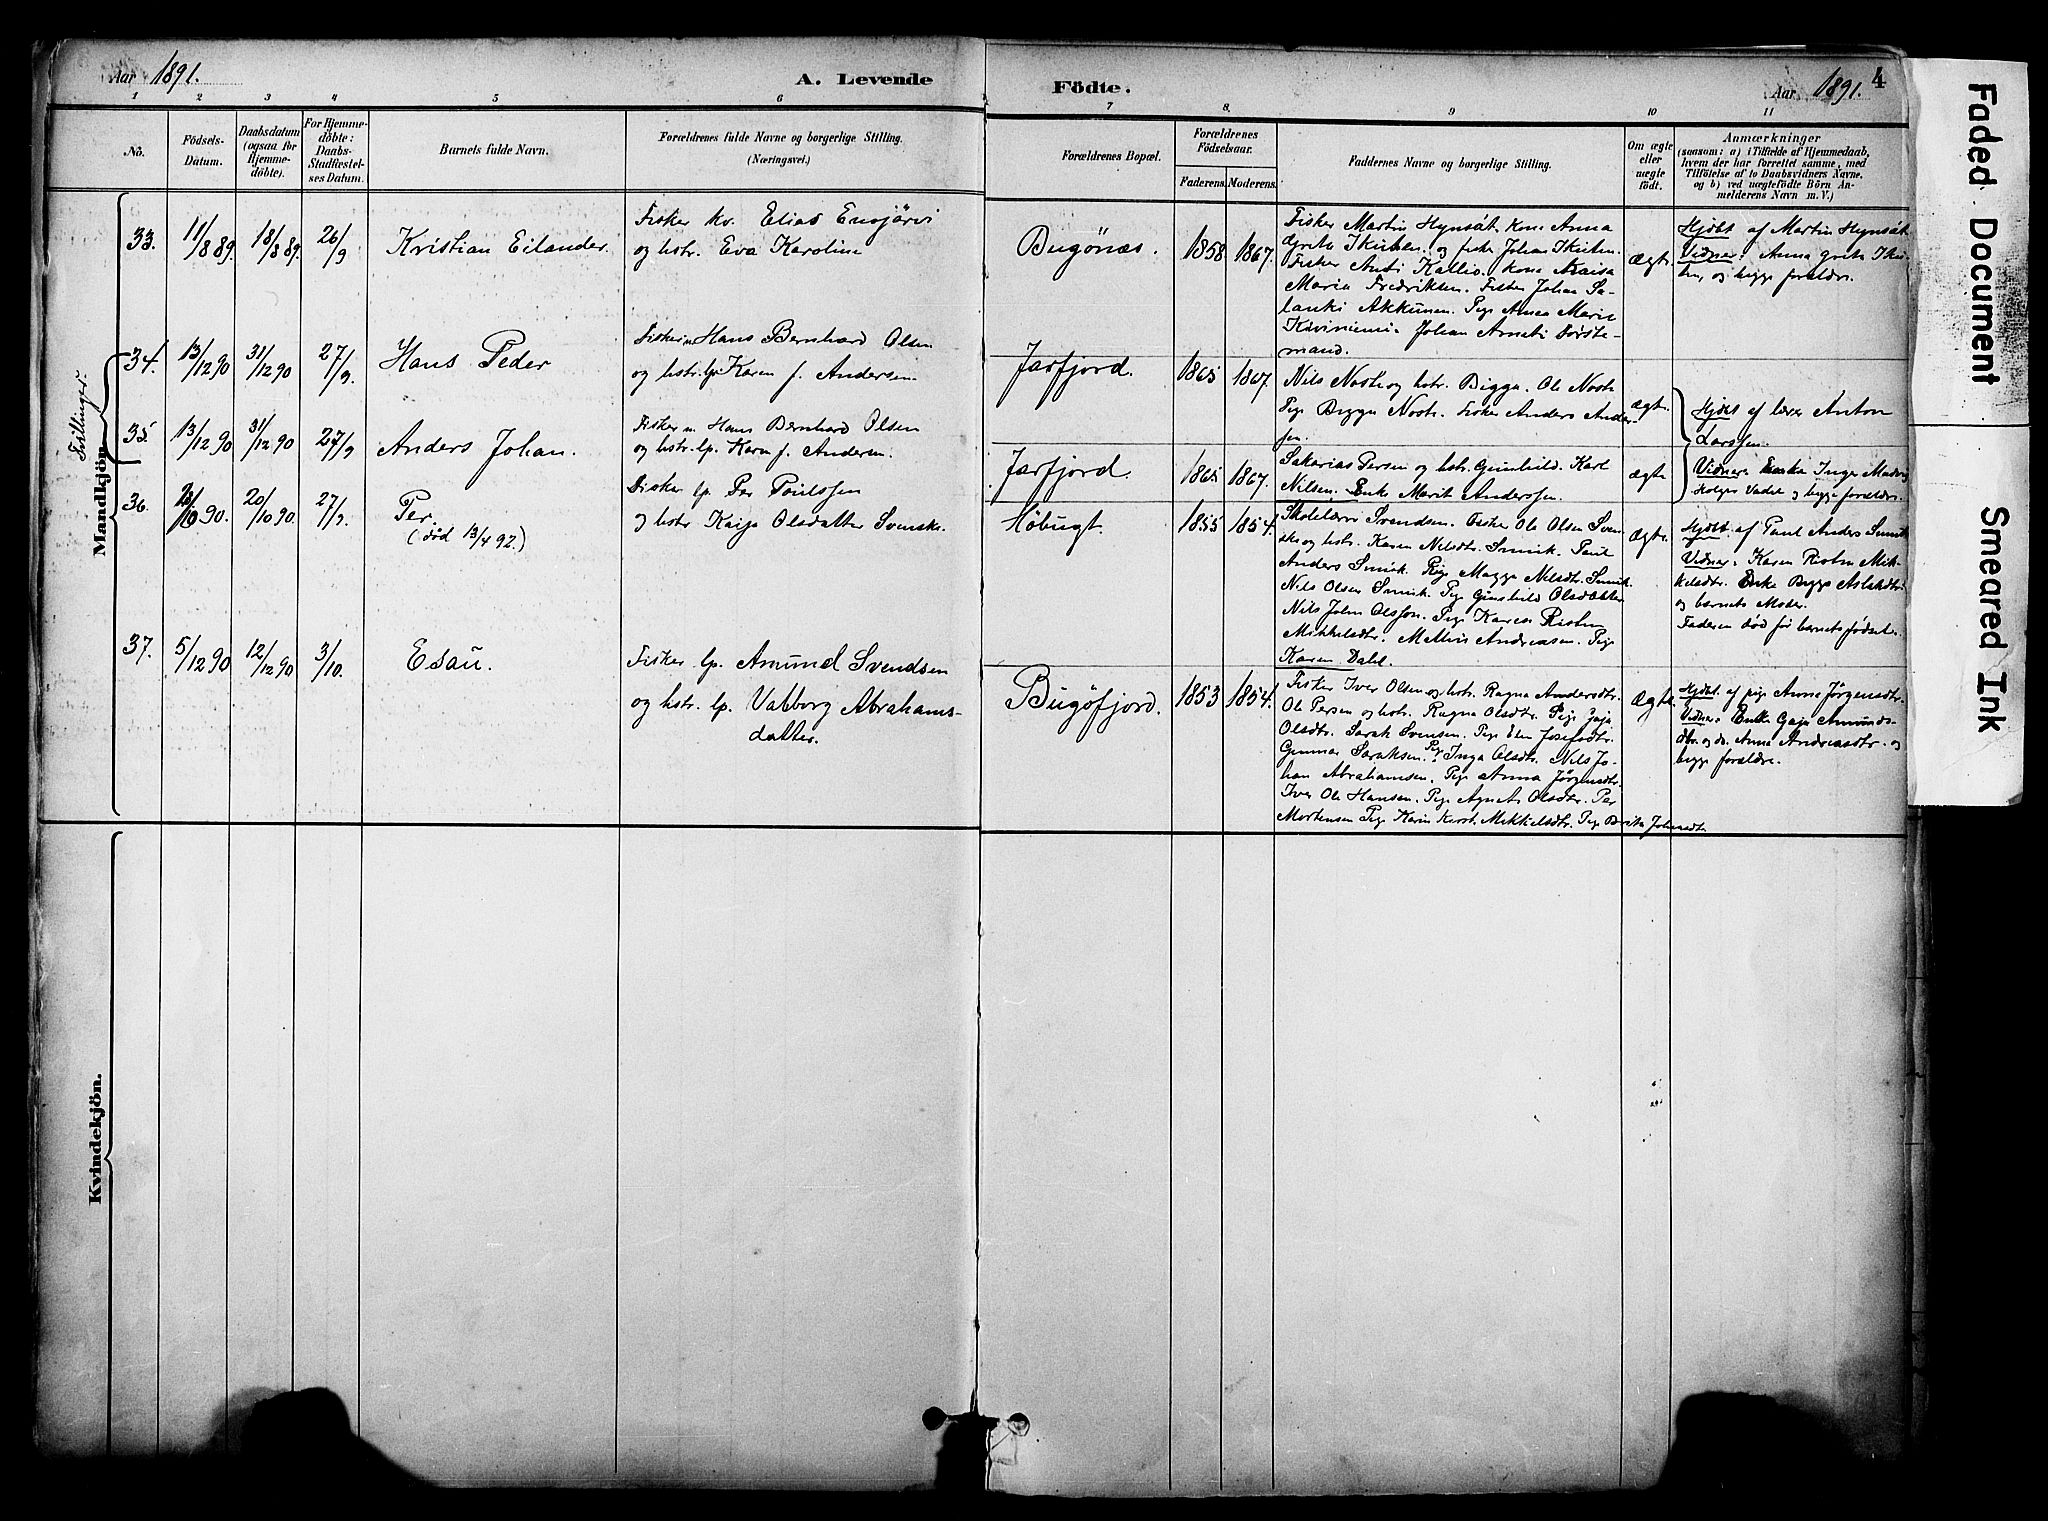 Aar 1891.
A. Levende
Födte.
Aar 1891.
4
1 2 3 4 5 6
7 8. 9 10 11
No.
Födsels-Datum.
Daabsdatum (ogsaa for Hjemmedöbte).
For Hjemmedöbte: Daabs-Stadfæstelses Datum.
Barnets fulde Navn.
Forældrenes fulde Navne og borgerlige Stilling.
(Næringsvei.)
Forældrenes Bopæl.
Forældrenes Födselsaar.
Faderens. Moderens.
Faddernes Navne og borgerlige Stilling.
Om ægte eller uægte født.
Anmærkninger
(saasom: a) i Tilfælde af Hjemmedaab, hvem der har forrettet samme, med Tilföielse af to Daabsvidners Navne, og b) ved uægtefödte Börn Anmelderens Navn m. V.)
Mandkjön.
Tvillinger.
33. 11/8 89. 18/8 89. 26/9 Kristian Eilander.
Fisker kv. Elias Ensjärvi
og hstr. Eva Karoline
Bugönæs. 1858 1867.
Fisker Martin Hynsät. kone Anna
Grete
og fisker Johan
Fisker Anti Kallio. kone Kaisa
Maria Fredriksen. Fisker Johan Sa-
lanki Akkunen. Pige Anna Marie
Kiviniemi. Johan
mand.
ægte
Hjdbt af Martin Hynsät.
Vidner: Anna Grete
og begge forældre.
34. 13/12 90 31/12 90 27/9. Hans Peder
Fisker n. Hans Bernhard Olsen
og hstr. lp. Karen f. Andersen
Jarfjord. 1865 1867.
Nils Noste og hstr. Bigga. Ole Noste
Pige Bigga Noste. Fisker Anders Ander-
sen.
ægte.
Hjdbt af lærer Anton
Larssen.
35. 13/12 90 31/12 90 27/9 Anders Johan.
Fisker n. Hans Bernhard Olsen
og hstr. lp. Karen f. Andersen.
Jarfjord. 1865 1867.
Sakarias Persen og hstr. Gunhild. Karl
Nilsen. Enke Marit Anderssen.
ægte
Vidner: Enke Inger
og begge forældre.
36. /10 90. 20/10 90. 27/9. Per.
(død 13/4 92.)
Fisker lp. Per Poulssen
og hstr Kaija Olsdatter Svensk.
Høbugt. 1855 1854.
Skolelærer Svendsen. Fisker Ole Olsen Sven-
ske og hstr. Karen Nilsdtr. Smuk. Poul
Anders Smuk. Pige Magga Nilsdtr. Smuk.
Nils Olsen Smuk. Pige Gunhild Olsdatter.
Nils John Olsson. Pige Karen Risten
Mikkelsdtr. Mathis Andreasen. Pige
Karen Dahl.
ægte.
Hjdbt. af Paul Anders Smuk
Vidner: Karen Risten Mik-
kelsdtr. Enke Bigga Aslakdtr.
og barnets Moder.
Faderen død før barnets fødsel.
37. 5/12 90 12/12 90 3/10. Esau.
Fisker lp. Amund Svendsen
og hstr. lp. Valborg Abrahams-
datter.
Bugöfjord. 1853 1854.
Fisker Iver Olsen og hstr. Ragna Andersdtr.
Ole Persen og hstr. Ragna Olsdtr. Pige Gaja
Olsdtr. Sarak Svensen. Pige Elen Josefsdtr.
Gunnar Saraksen. Pige Inga Olsdtr. Nils Jo-
han Abrahamsen. Pige Anna Jørgensdtr.
Iver Ole Hansen. Pige Agnete Olsdtr. Per
Mortensen Pige Karen Kirst. Mikkelsdtr. Pige Brita Johnsdtr.
ægte.
Hjdbt. af pige Anna Jørgensdtr.
Vidner: Enke Gaja Amunds-
dtr. og do. Anna Andreasdtr. og
begge forældre.
Kvindekjön.
Faded Document
Smeared Ink